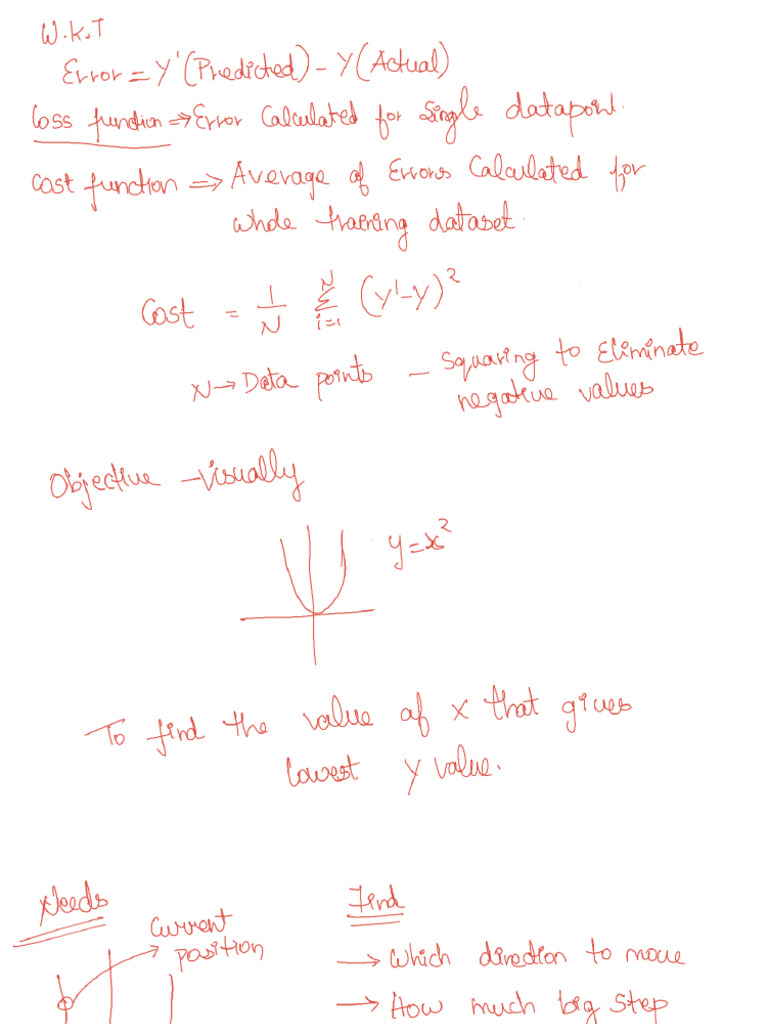 W.K.T
Error = Y'(Predicted) - Y(Actual)
Loss function ⇒ Error Calculated for single datapoint.
Cost function ⇒ Average of Errors Calculated for
whole training dataset.
Cost = 1/N N Σ i=1 (Y'-Y)²
N → Data points - Squaring to Eliminate
negative values
Objective - Visually
y=x²
To find the value of x that gives
lowest y value.
Needs
Current
position
Find
→ Which direction to move
→ How much big step